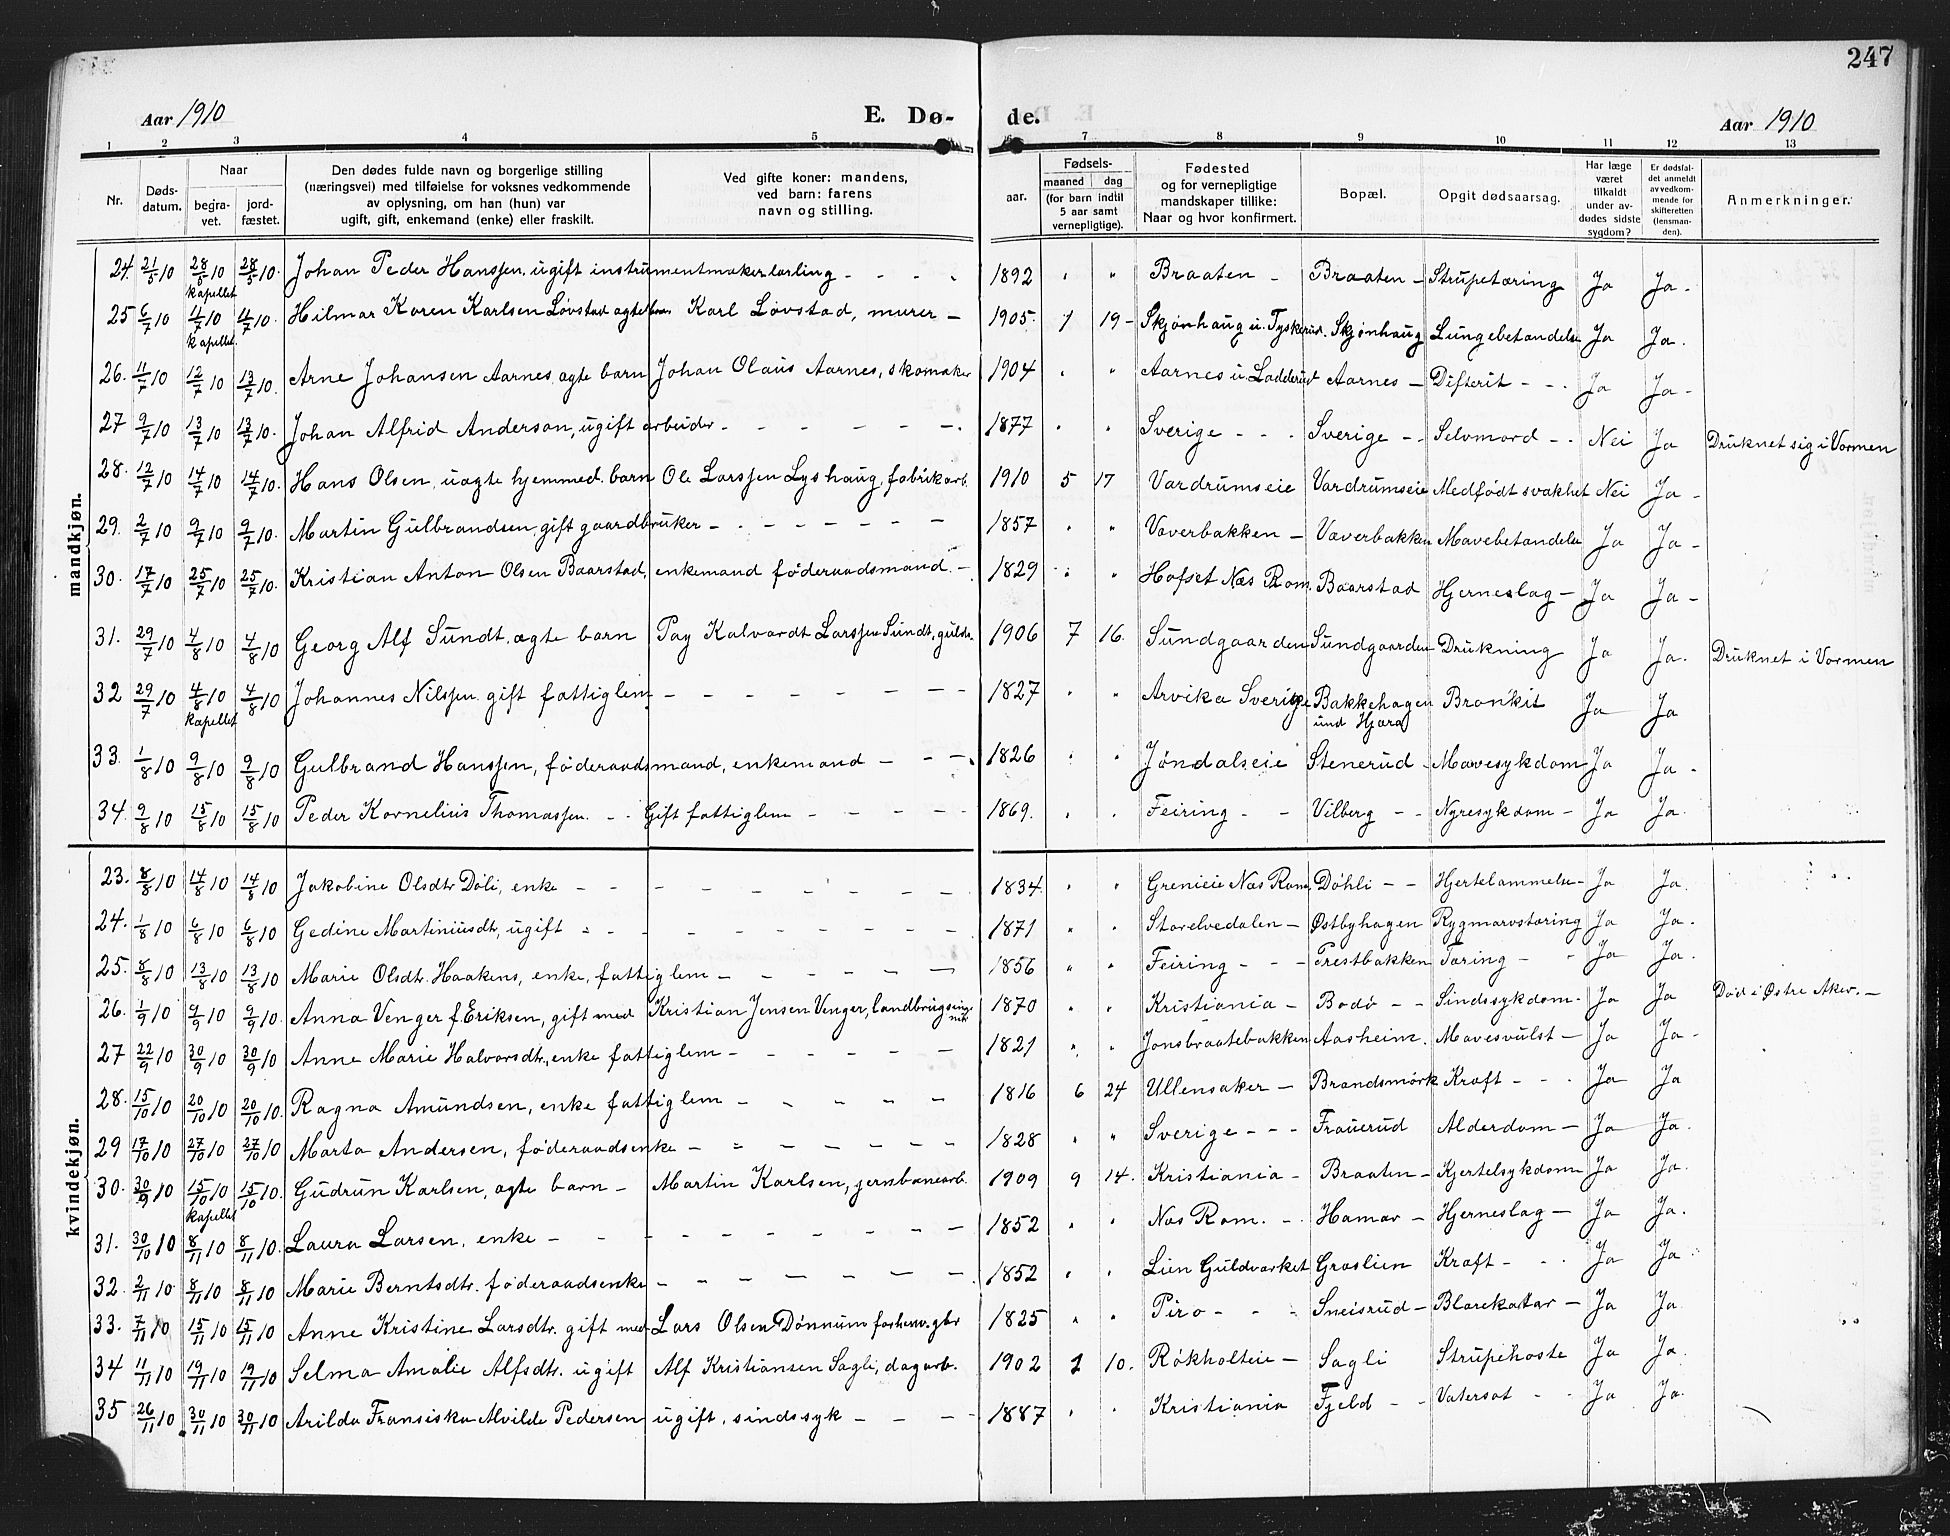 247
Aar 1910 E. Dø- de. Aar 1910
1 2 3 4 5 6 7 8 9 10 11 12 13
Nr. Døds-datum. Naar begra-vet. jord-fæstet. Den dødes fulde navn og borgerlige stilling (næringsvei) med tilføielse for voksnes vedkommende av oplysning, om han (hun) var ugift, gift, enkemand (enke) eller fraskilt. Ved gifte koner: mandens, ved barn: farens navn og stilling. aar. Fødsels- maaned dag (for barn indtil 5 aar samt vernepligtige). Fødested og for vernepligtige mandskaper tillike: Naar og hvor konfirmert. Bopæl. Opgit dødsaarsag. Har læge været tilkaldt under av-dødes sidste sygdom? Er dødsfal-det anmeldt av vedkom-mende for skifteretten (lensman-den). Anmerkninger.
mandkjøn.
24. 21/5 10 28/5 10 kapellet 28/5 10. Johan Peder Hanssen, ugift instrumentmakerlærling - - - - 1892 " " Braaten - Braaten - Strupetæring Ja Ja -
25 6/7 10 11/7 10 kapellet 11/7 10. Hilmar Karen Karlsen Løvstad ægte barn Karl Løvstad, murer - 1905. 1 19 - Skjønhaug u. Tyskerud. Skjønhaug Lungebetændelse Ja Ja.
26. 11/7 10 12/7 10 13/7 10. Arne Johansen Aarnes, ægte barn Johan Olaus Aarnes, skomaker 1904 " " Aarnes u Ladderud Aarnes - Difterit - - . Ja Ja -
27 9/7 10 13/7 10 13/7 10. Johan Alfrid Anderson, ugift arbeider - - - - - -. 1877 " " Sverige - - . Sverige - - Selvmord - . Nei Ja Druknet sig i Vormen
28. 12/7 10 14/7 10 14/7 10. Hans Olsen, uægte hjemmed. barn Ole Larssen Lyshaug, fabrikarb. 1910 5 17 Vardrumseie Vardrumseie Medfødt svakhet Nei Ja -
29. 2/7 10 9/7 10 9/7 10. Martin Gulbrandsen, gift gaardbruker - - - - - - 1857 " " Væverbakken - Væverbakken Mavebetændelse Ja Ja -
30. 17/7 10 25/7 10 25/7 10. Kristian Anton Olsen Baarstad, enkemand føderaadsmand. - 1829 " " Hofset Næs Rom. Baarstad Hjerneslag - Ja Ja -
31. 29/7 10 4/8 10 4/8 10 Georg Alf Sundt, ægte barn Pay Kalvardt Larssen Sundt, 1906 7 16. Sundgaarden Sundgaarden Drukning Ja Ja. Druknet i Vormen
32 29/7 10 4/8 10 kapellet 4/8 10 Johannes Nilssen gift fattiglem - - - - - - - 1827 " " Arvika Sverige Bakkehagen und Hjera Bronkit Ja Ja
33. 1/8 10 9/8 10 9/8 10 Gulbrand Hanssen, føderaadsmand, enkemand - - - 1826 " " Jøndalseie Stenerud - Mavesykdom Ja Ja -
34. 9/8 10 15/8 10 15/8 10 Peder Kornelius Thomassen. - - Gift fattiglem - - - - - 1869. " " Feiring - - Vilberg - - Nyresykdom - Ja Ja.
kvindekjøn.
23. 8/8 10 14/8 10 14/8 10. Jakobine Olsdtr Døli, enke - - - - - - - - 1834. " " Grenieie Næs Rom. Døhli - - Hjertelammelse - Ja Ja.
24. 1/8 10 6/8 10 6/8 10. Gedine Martiniusdtr, ugift - - - - - - - - 1871 " " Storelvedalen - Østbyhagen Rygmarvstæring Ja Ja.
25. 8/8 10 13/8 10 13/8 10. Marie Olsdtr. Haakens, enke, fattiglem - - - - - - 1856 " " Feiring - - - Prestbakken Tæring - " Ja Ja.
26. 1/9 10 9/9 10 9/9 10. Anna Venger f. Eriksen, gift med Kristian Jensen Venger, landbrugsingeniør 1870 " " Kristiania - Bodø - - Sindssykdom. - Ja Ja Død i Østre Aker. -
27 22/9 10 30/9 10 30/9 10. Anne Marie Halvorsdtr., enke fattiglem - - - - - - 1821 " " Jonsbraatebakken Aasheim. Mavesvulst - Ja Ja -
28. 15/10 10 20/10 10 20/10 10. Ragna Amundsen, enke fattiglem - - - - - 1816 6 24 Ullensaker - Brandsmørk Kræft - - . Ja Ja
29 17/10 10 27/10 10 27/10 10. Marta Andersen, føderaadsenke - - - - - - - 1828 " " Sverige - - - Frauerud Alderdom - Ja Ja.
30. 30/9 10 15/10 10 kapellet 15/10 10. Gudrun Karlsen, ægte barn - Martin Karlsen, jernbanearb. 1909 9 14. Kristiania - Braaten - Kjertelsykdom Ja Ja.
31. 30/10 10 8/11 10 8/11 10. Laura Larsen, enke - - - - - - - - - 1852 " " Næs Rom. - . Hamar - Hjerneslag - Ja Ja.
32. 2/11 10. 8/11 10 8/11 10 Marie Berntsdtr. føderaadsenke - - - - - - - 1852 " " Lien Guldværket Græslien Kræft - - . Ja Ja
33. 7/11 10 15/11 10 15/11 10 Anne Kristine Larsdtr. gift med Lars Olsen Dønnum forhenv. gbr 1825 " " Piro - - - Sneisrud - Blærekatar - Ja Ja
34 11/11 10 19/11 10 19/11 10 Selma Amalie Alfsdtr. ugift Alf Kristiansen Sagli, dagarb. 1902 1 10. Røkholteie - Sagli Strupehoste Ja Ja.
35 26/11 10 30/11 10 30/11 10 Arilda Fransiska Alvilde Pedersen ugift, sindssyk - - - - 1887 " " Kristiania Fjeld - - Vatersot - - Ja Ja.